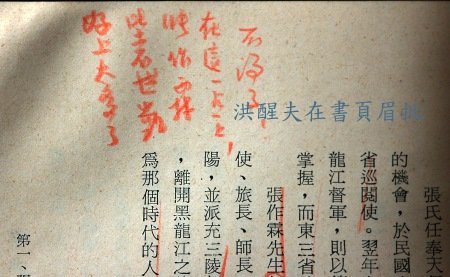 不得了！
在這一点上，
張作霖
比袁世凱
好上太多了
洪醒夫在書頁眉批
張氏任奉天
的機會，於民國
省巡閱使。翌年
龍江督軍，則以
掌握，而東三省
張作霖先生
使、旅長、師長
陽，並派充三陵
，離開黑龍江之
為那個時代的人
第一、